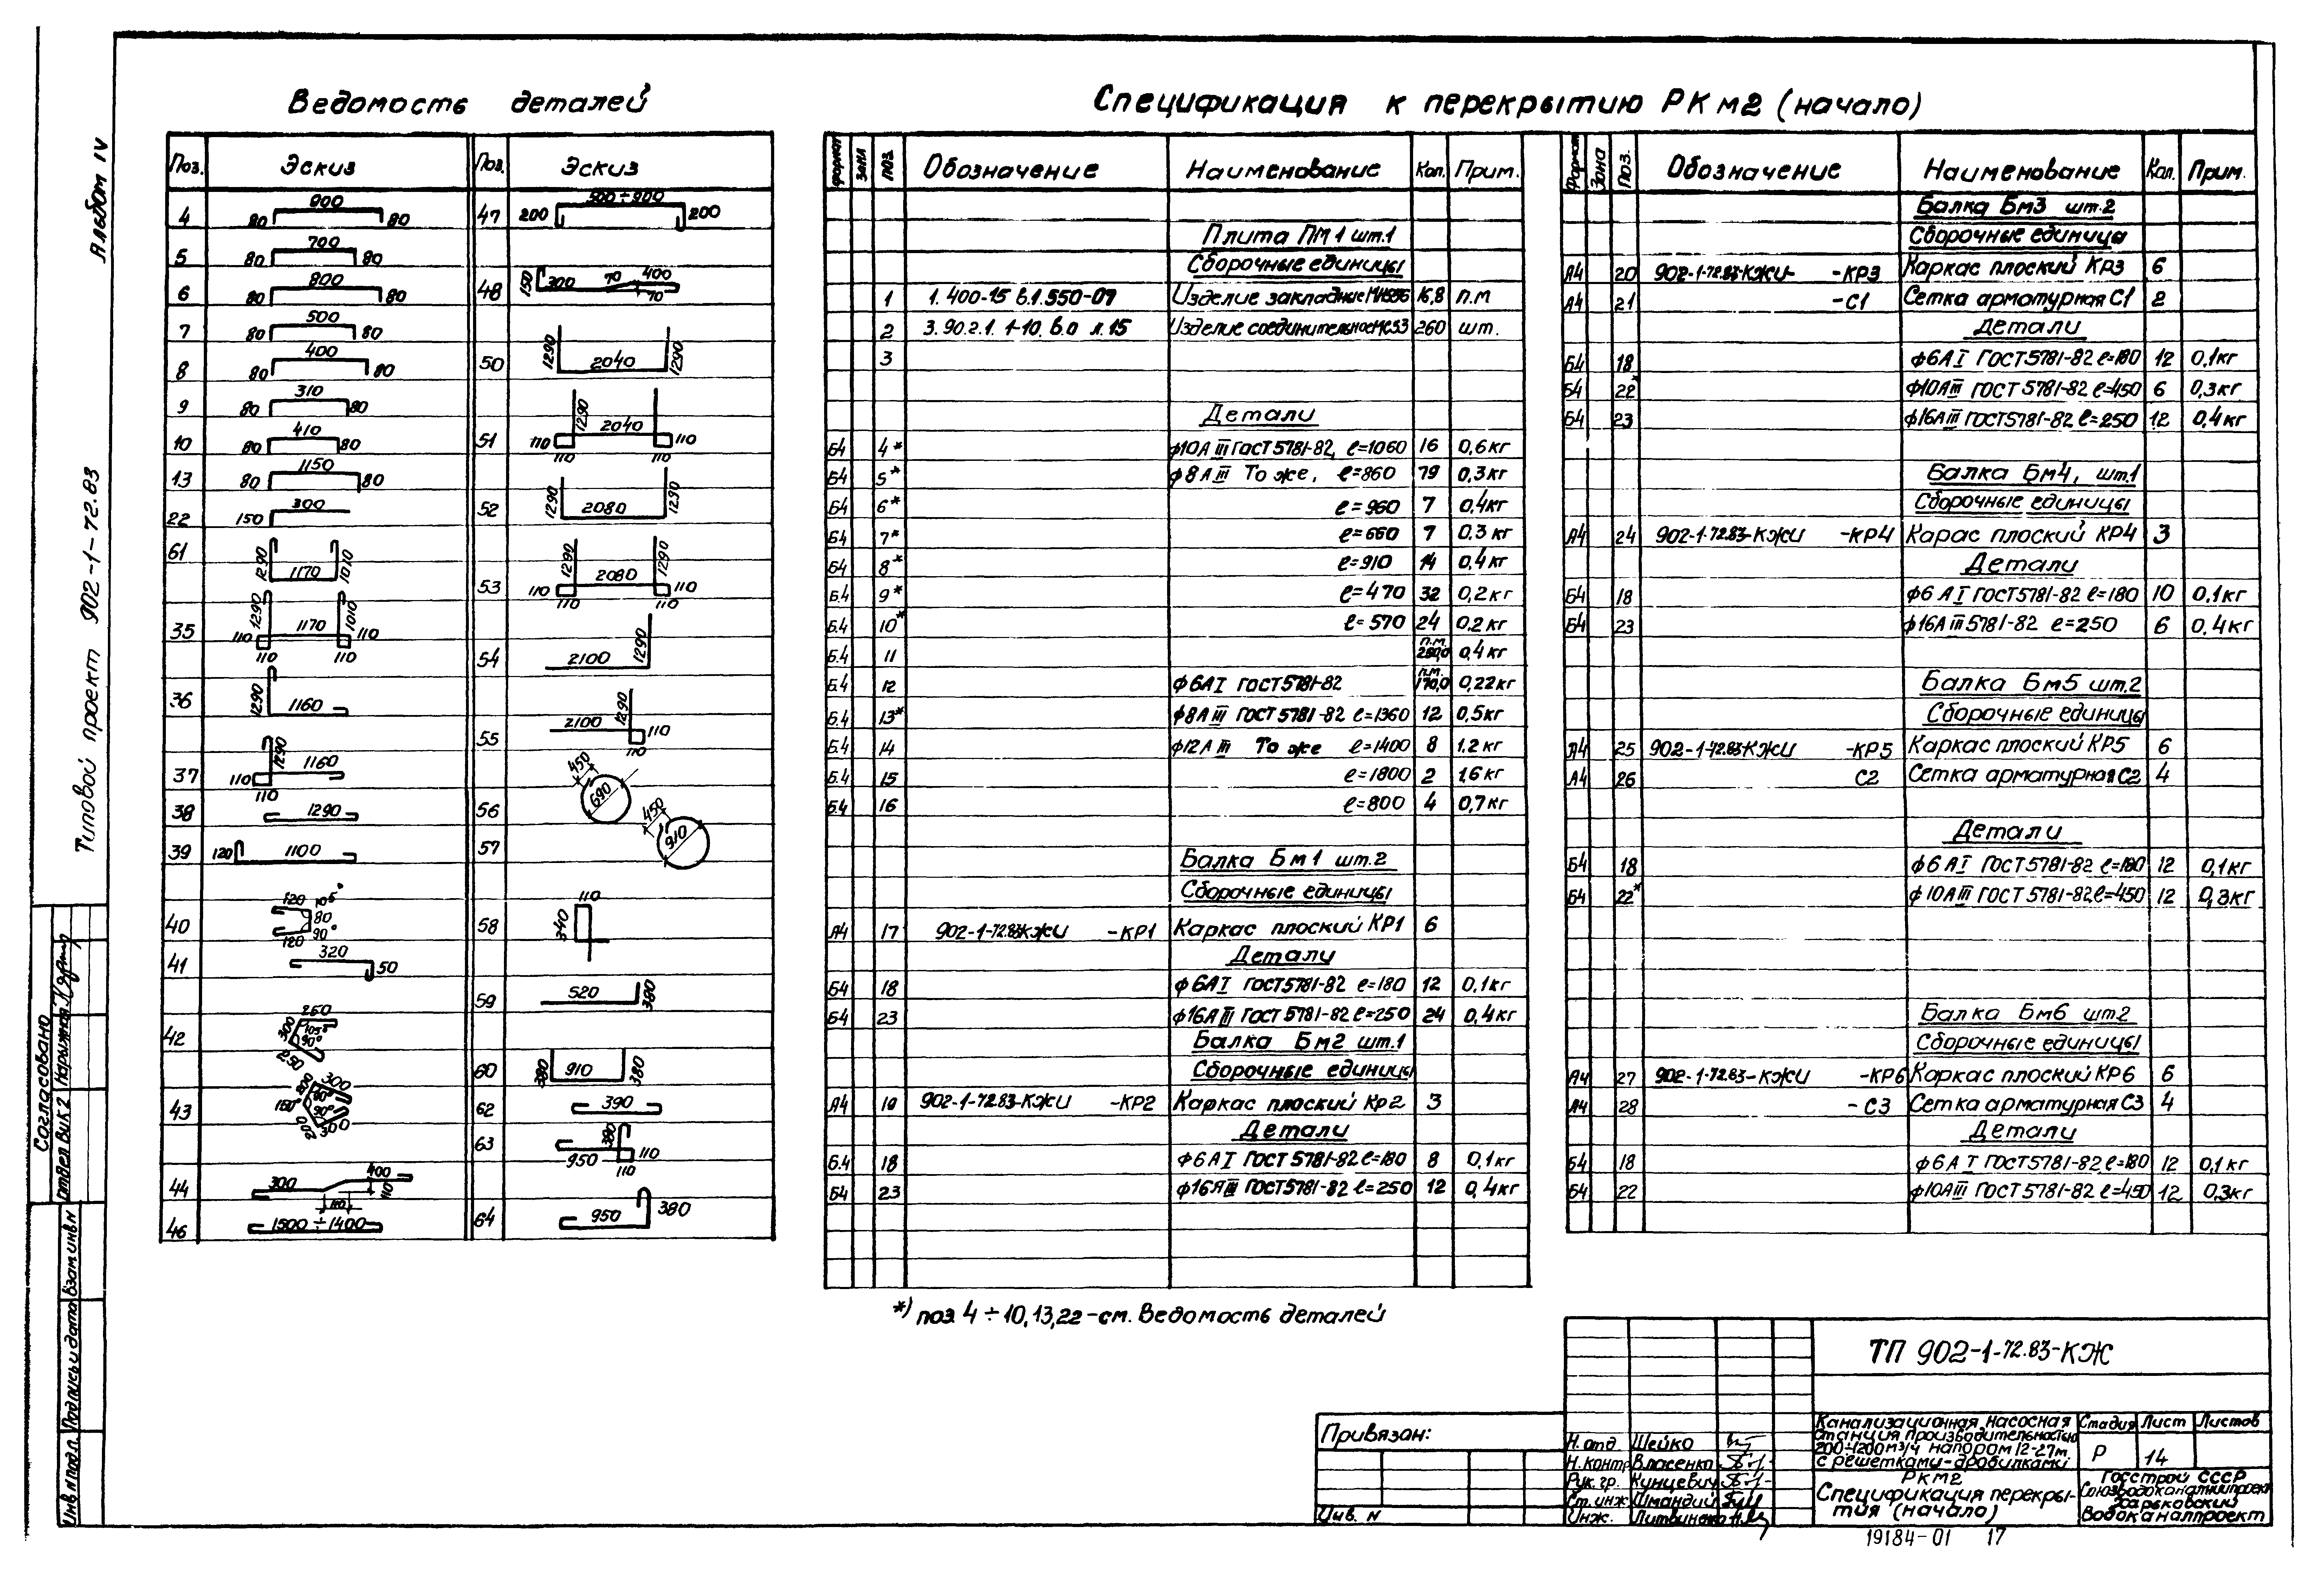 Альбом IV
Типовой проект 902-1-72.83
Согласовано
Инв.N подл. Подпись и дата Взам.инв.N
Ведомость деталей
Поз. Эскиз Поз. Эскиз
4 80 900 80
5 80 700 80
6 80 800 80
7 80 500 80
8 80 400 80
9 80 310 80
10 80 410 80
13 80 1150 80
22 150 300
61 1290 1170 1010
35 110 1290 1170 1010 110 110 110
36 1290 1160
37 110 1290 1160 110
38 1290
39 120 1100
40 120 105° 80 90° 120
41 320 50
42 250 300 105° 90° 250
43 300 90° 300 200
44 300 400 110
46 1500÷1400
47 200 500÷900 200
48 150 300 70 400 70
50 1290 2040 1290
51 110 1290 2040 110 110 110
52 1290 2080 1290
53 110 1290 2080 1290 110 110 110
54 2100 1290
55 2100 1290 110 110
56 450 690
57 450 910
58 110 340
59 520 380
60 380 910 380
62 390
63 950 380 110 110
64 950 380
Спецификация к перекрытию РКм2 (начало)
Формат Зона Поз. Обозначение Наименование Кол. Прим.
Плита ПМ1 шт.1
Сборочные единицы
1 1.400-15 в.1.550-07 Изделие закладное 16,8 п.м
2 3.90.2.1. 1-10. в.0 л.15 Изделие соединительное МС53 260 шт.
3
Детали
Б4 4* ф10АIII ГОСТ 5781-82, ℓ=1060 16 0,6кг
Б4 5* ф8АIII То же, ℓ=860 79 0,3кг
Б4 6* ℓ=960 7 0,4кг
Б4 7* ℓ=660 7 0,3кг
Б4 8* ℓ=910 14 0,4кг
Б.4 9* ℓ=470 32 0,2кг
Б.4 10* ℓ=570 24 0,2кг
Б.4 11 п.м. 0,4кг
Б.4 12 ф6АI ГОСТ 5781-82 п.м. 170,0 0,22кг
Б.4 13* ф8АIII ГОСТ 5781-82 ℓ=1360 12 0,5кг
Б.4 14 ф12АIII То же ℓ=1400 8 1,2кг
Б.4 15 ℓ=1800 2 1,6кг
Б.4 16 ℓ=800 4 0,7кг
Балка Бм1 шт.2
Сборочные единицы
А4 17 902-1-72.83КЖИ -КР1 Каркас плоский КР1 6
Детали
Б4 18 ф6АI ГОСТ 5781-82 ℓ=180 12 0,1кг
Б4 23 ф16АIII ГОСТ 5781-82 ℓ=250 24 0,4кг
Балка Бм2 шт.1
Сборочные единицы
А4 19 902-1-72.83-КЖИ -КР2 Каркас плоский Кр2 3
Детали
Б.4 18 ф6АI ГОСТ 5781-82 ℓ=180 8 0,1кг
Б4 23 ф16АIII ГОСТ 5781-82 ℓ=250 12 0,4кг
*) поз 4÷10,13,22-см. Ведомость деталей
Формат Зона Поз. Обозначение Наименование Кол. Прим.
Балка Бм3 шт.2
Сборочные единицы
А4 20 902-1-72.83-КЖИ- -КР3 Каркас плоский Кр3 6
А4 21 -С1 Сетка арматурная С1 2
Детали
Б4 18 ф6АI ГОСТ 5781-82 ℓ=180 12 0,1кг
Б4 22* ф10АIII ГОСТ 5781-82 ℓ=450 6 0,3кг
Б4 23 ф16АIII ГОСТ 5781-82 ℓ=250 12 0,4кг
Балка Бм4, шт.1
Сборочные единицы
А4 24 902-1-72.83-КЖИ -КР4 Карас плоский КР4 3
Детали
Б4 18 ф6 АI ГОСТ 5781-82 ℓ=180 10 0,1кг
Б4 23 ф16АIII 5781-82 ℓ=250 6 0,4кг
Балка Бм5 шт.2
Сборочные единицы
А4 25 902-1-72.83-КЖИ -КР5 Каркас плоский КР5 6
А4 26 С2 Сетка арматурная С2 4
Детали
Б4 18 ф6 АI ГОСТ 5781-82 ℓ=180 12 0,1кг
Б4 22* ф10АIII ГОСТ 5781-82 ℓ=450 12 0,3кг
Балка Бм6 шт2
Сборочные единицы
А4 27 902-1-72.83-КЖИ -КР6 Каркас плоский КР6 6
А4 28 -С3 Сетка арматурная С3 4
Детали
Б4 18 ф6А I ГОСТ 5781-82 ℓ=180 12 0,1кг
Б4 22 ф10АIII ГОСТ 5781-82 ℓ=450 12 0,3кг
ТП 902-1-72.83-КЖ
Привязан:
Инв. N
Н.отд Шейко
Н.контр Власенко
Рук.гр. Кунцевич
Ст.инж Шмандий
Инж. Литвиненко
Канализационная насосная
станция производительностью
200÷1200м³/ч напором 12-27м
с решетками-дробилками
Стадия Лист Листов
Р 14
РКм2
Спецификация перекры-
тия (начало)
Госстрой СССР
Союзводоканалниипроект
Харьковский
Водоканалпроект
19184-01 17